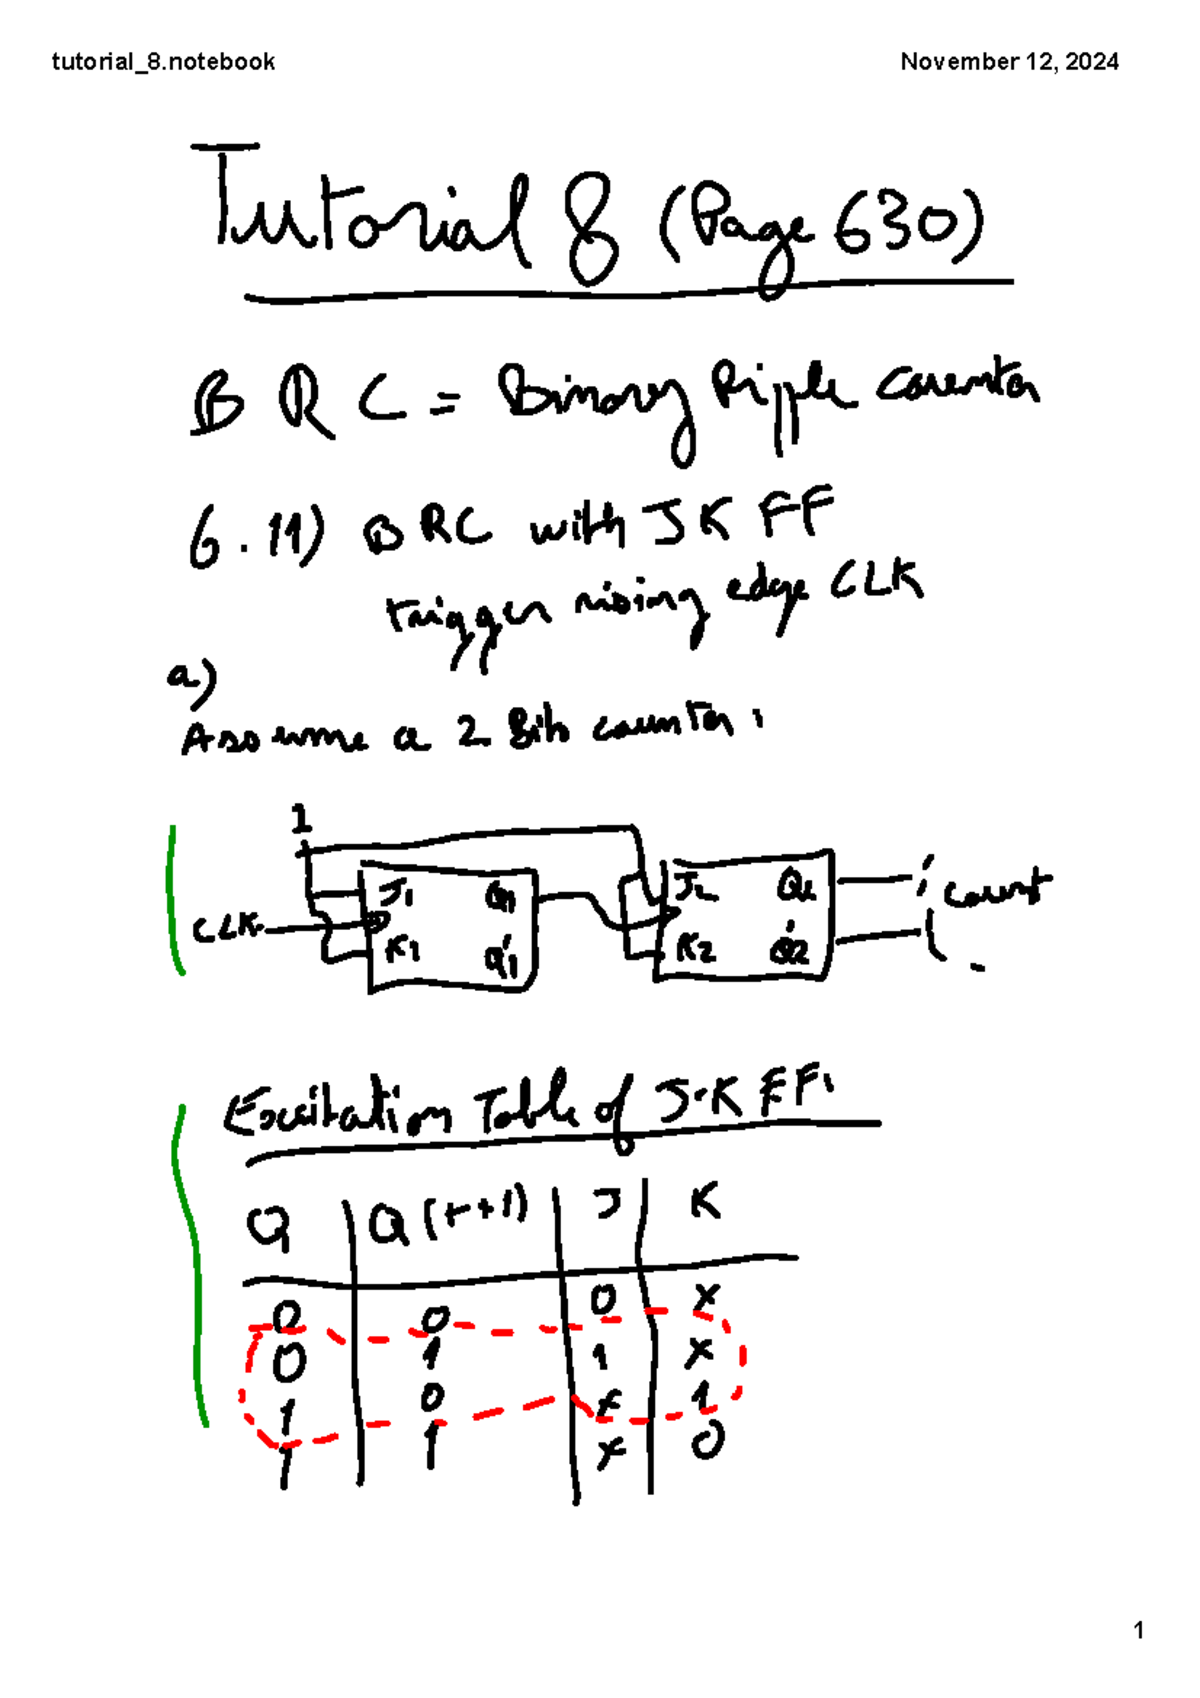 tutorial_8.notebook November 12, 2024
Tutorial 8 (Page 630)
B R C = Binary Ripple counter
6.11) BRC with JK FF
trigger rising edge CLK
a)
Assume a 2 bits counter:
1
J1 Q1 J2 Q2 count
CLK
K1 Q'1 K2 Q'2
Excitation Table of J-K FF:
Q Q(t+1) J K
0 0 0 x
0 1 1 x
1 0 x 1
1 1 x 0
1